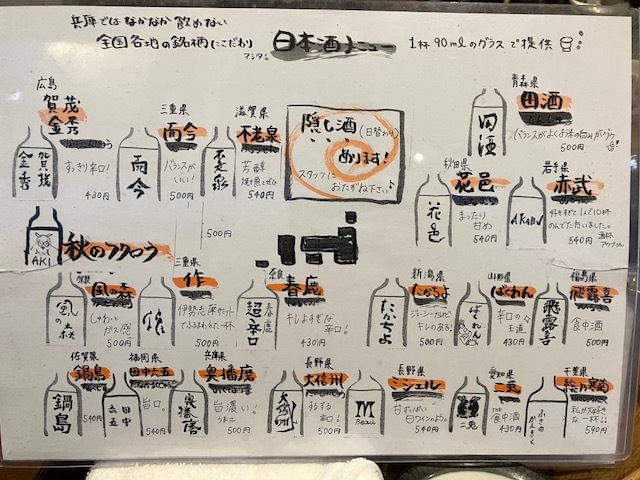 兵庫ではなかなか飲めない
全国各地の銘柄にこだわりマシタ。
日本酒メニュー
1杯90mlのグラスで提供
広島
賀茂金秀
賀茂金秀
すっきり辛口!
430円
三重県
而今
而今
バランスがいい!
500円
滋賀県
不老泉
不老泉
芳醇
540円
隠し酒(日替わり)
あります!
スタッフに
おたずね下さい♪
青森県
田酒
田酒
バランスがよくお米の白みがグウ
500円
秋田県
花邑
花邑
まったり
甘め
540円
岩手県
赤武
AKABU
好きすぎて1人で10杯
のんでた方いました。
540円
AKI
秋のフクロウ
500円
奈良
風の森
風の森
しゅわっと
ガス感
500円
三重県
作
作
伊勢志摩サミット
でふるまわれた一杯
500円
奈良
春鹿
春鹿
超辛口
キレよすぎな
辛口!
430円
新潟県
たかちよ
たかちよ
ジューシーだけど
キレのある!
500円
山形県
ばくれん
ばくれん
辛口の
王道
430円
福島県
飛露喜
飛露喜
食中酒
500円
佐賀県
鍋島
鍋島
540円
福岡県
田中六五
田中六五
旨口。
540円
兵庫県
奥播磨
奥播磨
旨濃い!
500円
長野県
大信州
大信州
するする
和!
500円
長野県
ミシェル
Beau
M
甘ずっぱい
白ワインのよう。
540円
愛知県
二兎
二兎
THE
食中酒
430円
千葉県
ふさのかんぎく
私が大好き
な一杯!!
590円